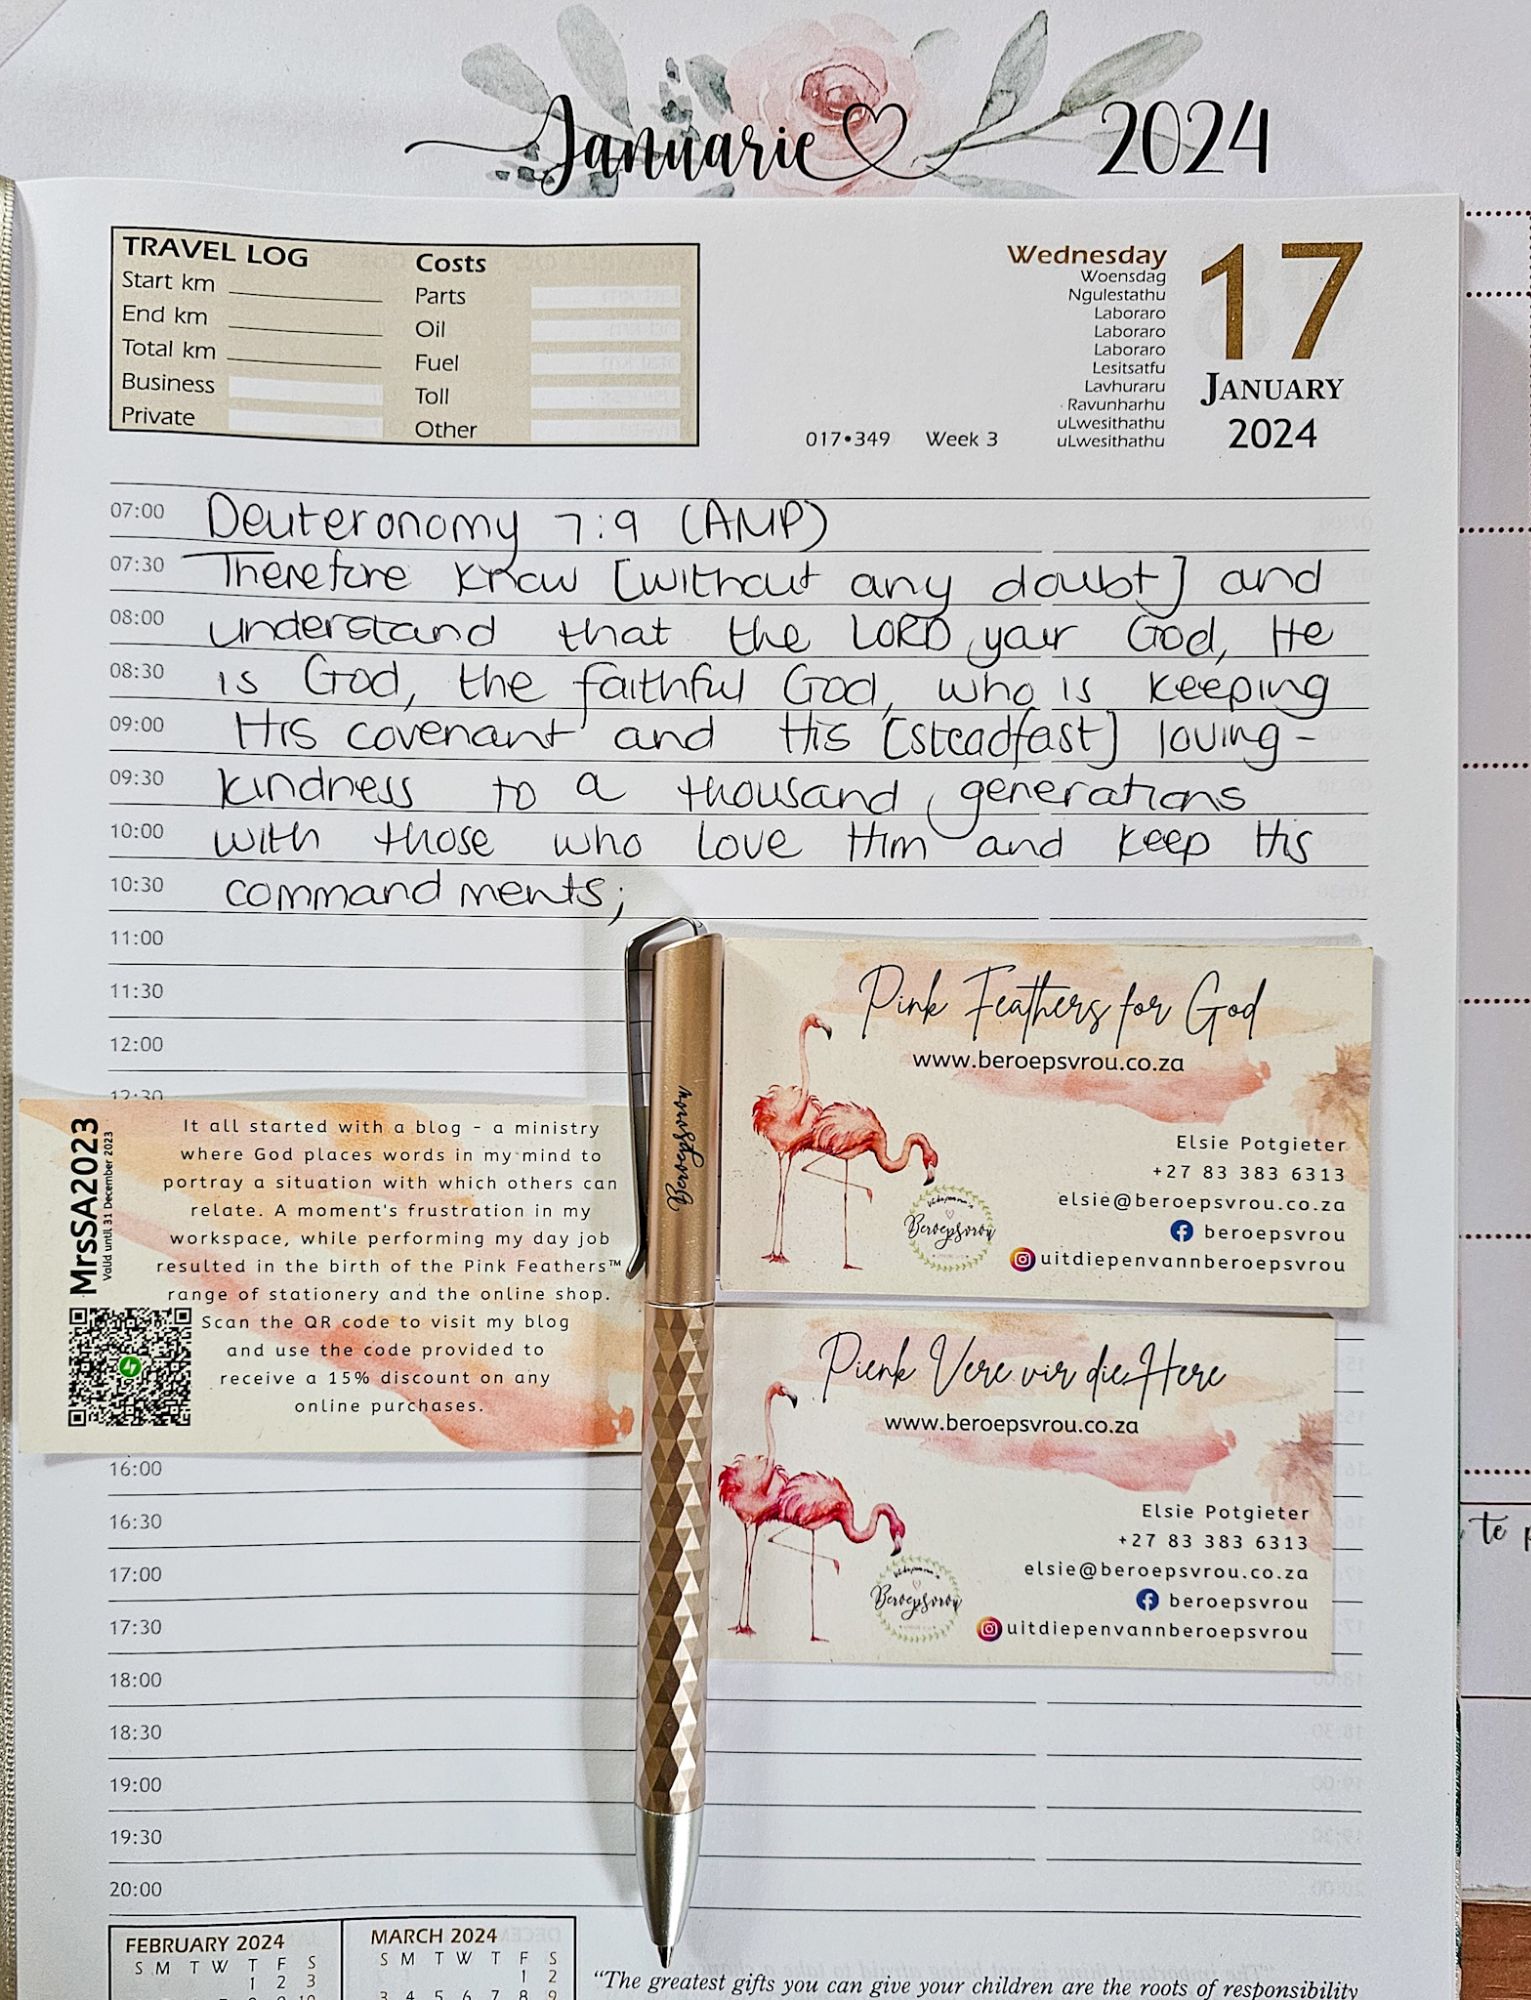 Januarie 2024
TRAVEL LOG
Start km
End km
Total km
Business
Private
Costs
Parts
Oil
Fuel
Toll
Other
017•349 Week 3
Wednesday
Woensdag
Ngulestathu
Laboraro
Laboraro
Laboraro
Lesitsatfu
Lavhuraru
Ravunharhu
uLwesithathu
uLwesithathu
17
JANUARY
2024
07:00 Deuteronomy 7:9 (AMP)
07:30 Therefore know [without any doubt] and
08:00 understand that the LORD your God, He
08:30 is God, the faithful God, who is keeping
09:00 His covenant and His [steadfast] loving-
09:30 kindness to a thousand generations
10:00 with those who love Him and keep His
10:30 commandments;
11:00
11:30
12:00
12:30
Pink Feathers for God
www.beroepsvrou.co.za
Elsie Potgieter
+27 83 383 6313
elsie@beroepsvrou.co.za
beroepsvrou
uitdiepenvannberoepsvrou
Beroepsvrou
Beroepsvrou
MrsSA2023
Valid until 31 December 2023
It all started with a blog - a ministry
where God places words in my mind to
portray a situation with which others can
relate. A moment's frustration in my
workspace, while performing my day job
resulted in the birth of the Pink Feathers™
range of stationery and the online shop.
Scan the QR code to visit my blog
and use the code provided to
receive a 15% discount on any
online purchases.
Pienk Vere vir die Here
www.beroepsvrou.co.za
Elsie Potgieter
+27 83 383 6313
elsie@beroepsvrou.co.za
beroepsvrou
uitdiepenvannberoepsvrou
Beroepsvrou
te
16:00
16:30
17:00
17:30
18:00
18:30
19:00
19:30
20:00
FEBRUARY 2024
S M T W T F S
1 2 3
MARCH 2024
S M T W T F S
1 2
3 4 5 6 7 8 9
"The greatest gifts you can give your children are the roots of responsibility